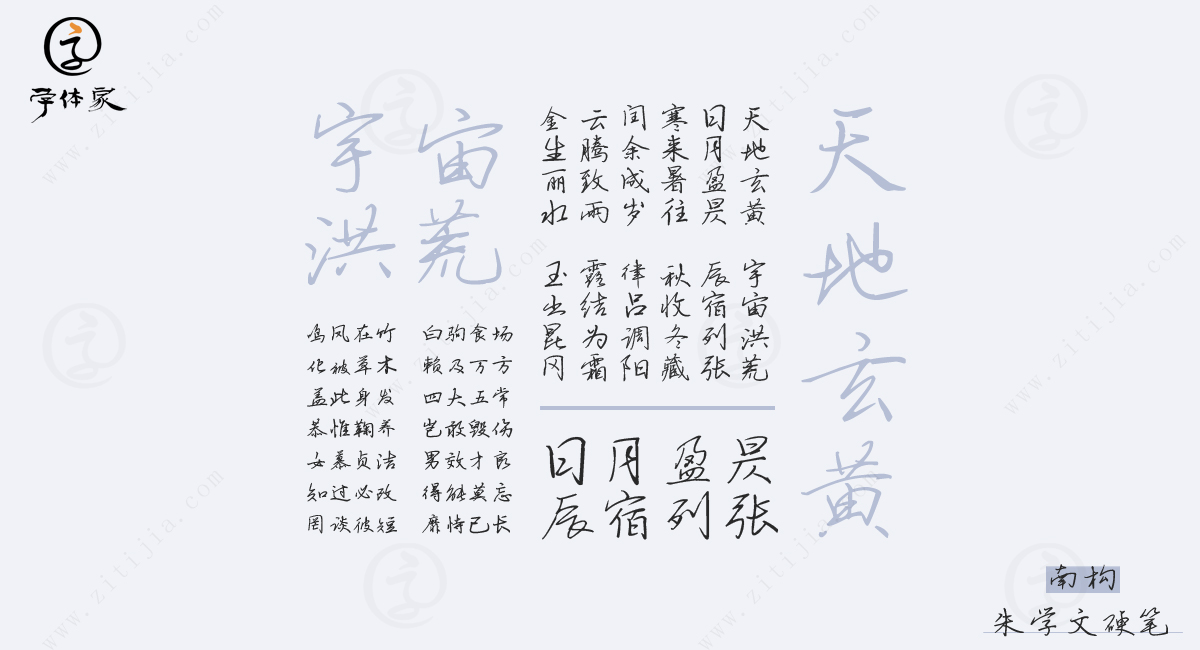 字
字体家
天地玄黄
宇宙
洪荒
天地玄黄
日月盈昃
寒来暑往
闰余成岁
云腾致雨
金生丽水
宇宙洪荒
辰宿列张
秋收冬藏
律吕调阳
露结为霜
玉出昆冈
鸣凤在竹 白驹食场
化被草木 赖及万方
盖此身发 四大五常
恭惟鞠养 岂敢毁伤
女慕贞洁 男效才良
知过必改 得能莫忘
罔谈彼短 靡恃已长
日月盈昃
辰宿列张
南构
朱学文硬笔
www.zitijia.com
www.zitijia.com
www.zitijia.com
www.zitijia.com
www.zitijia.com
www.zitijia.com